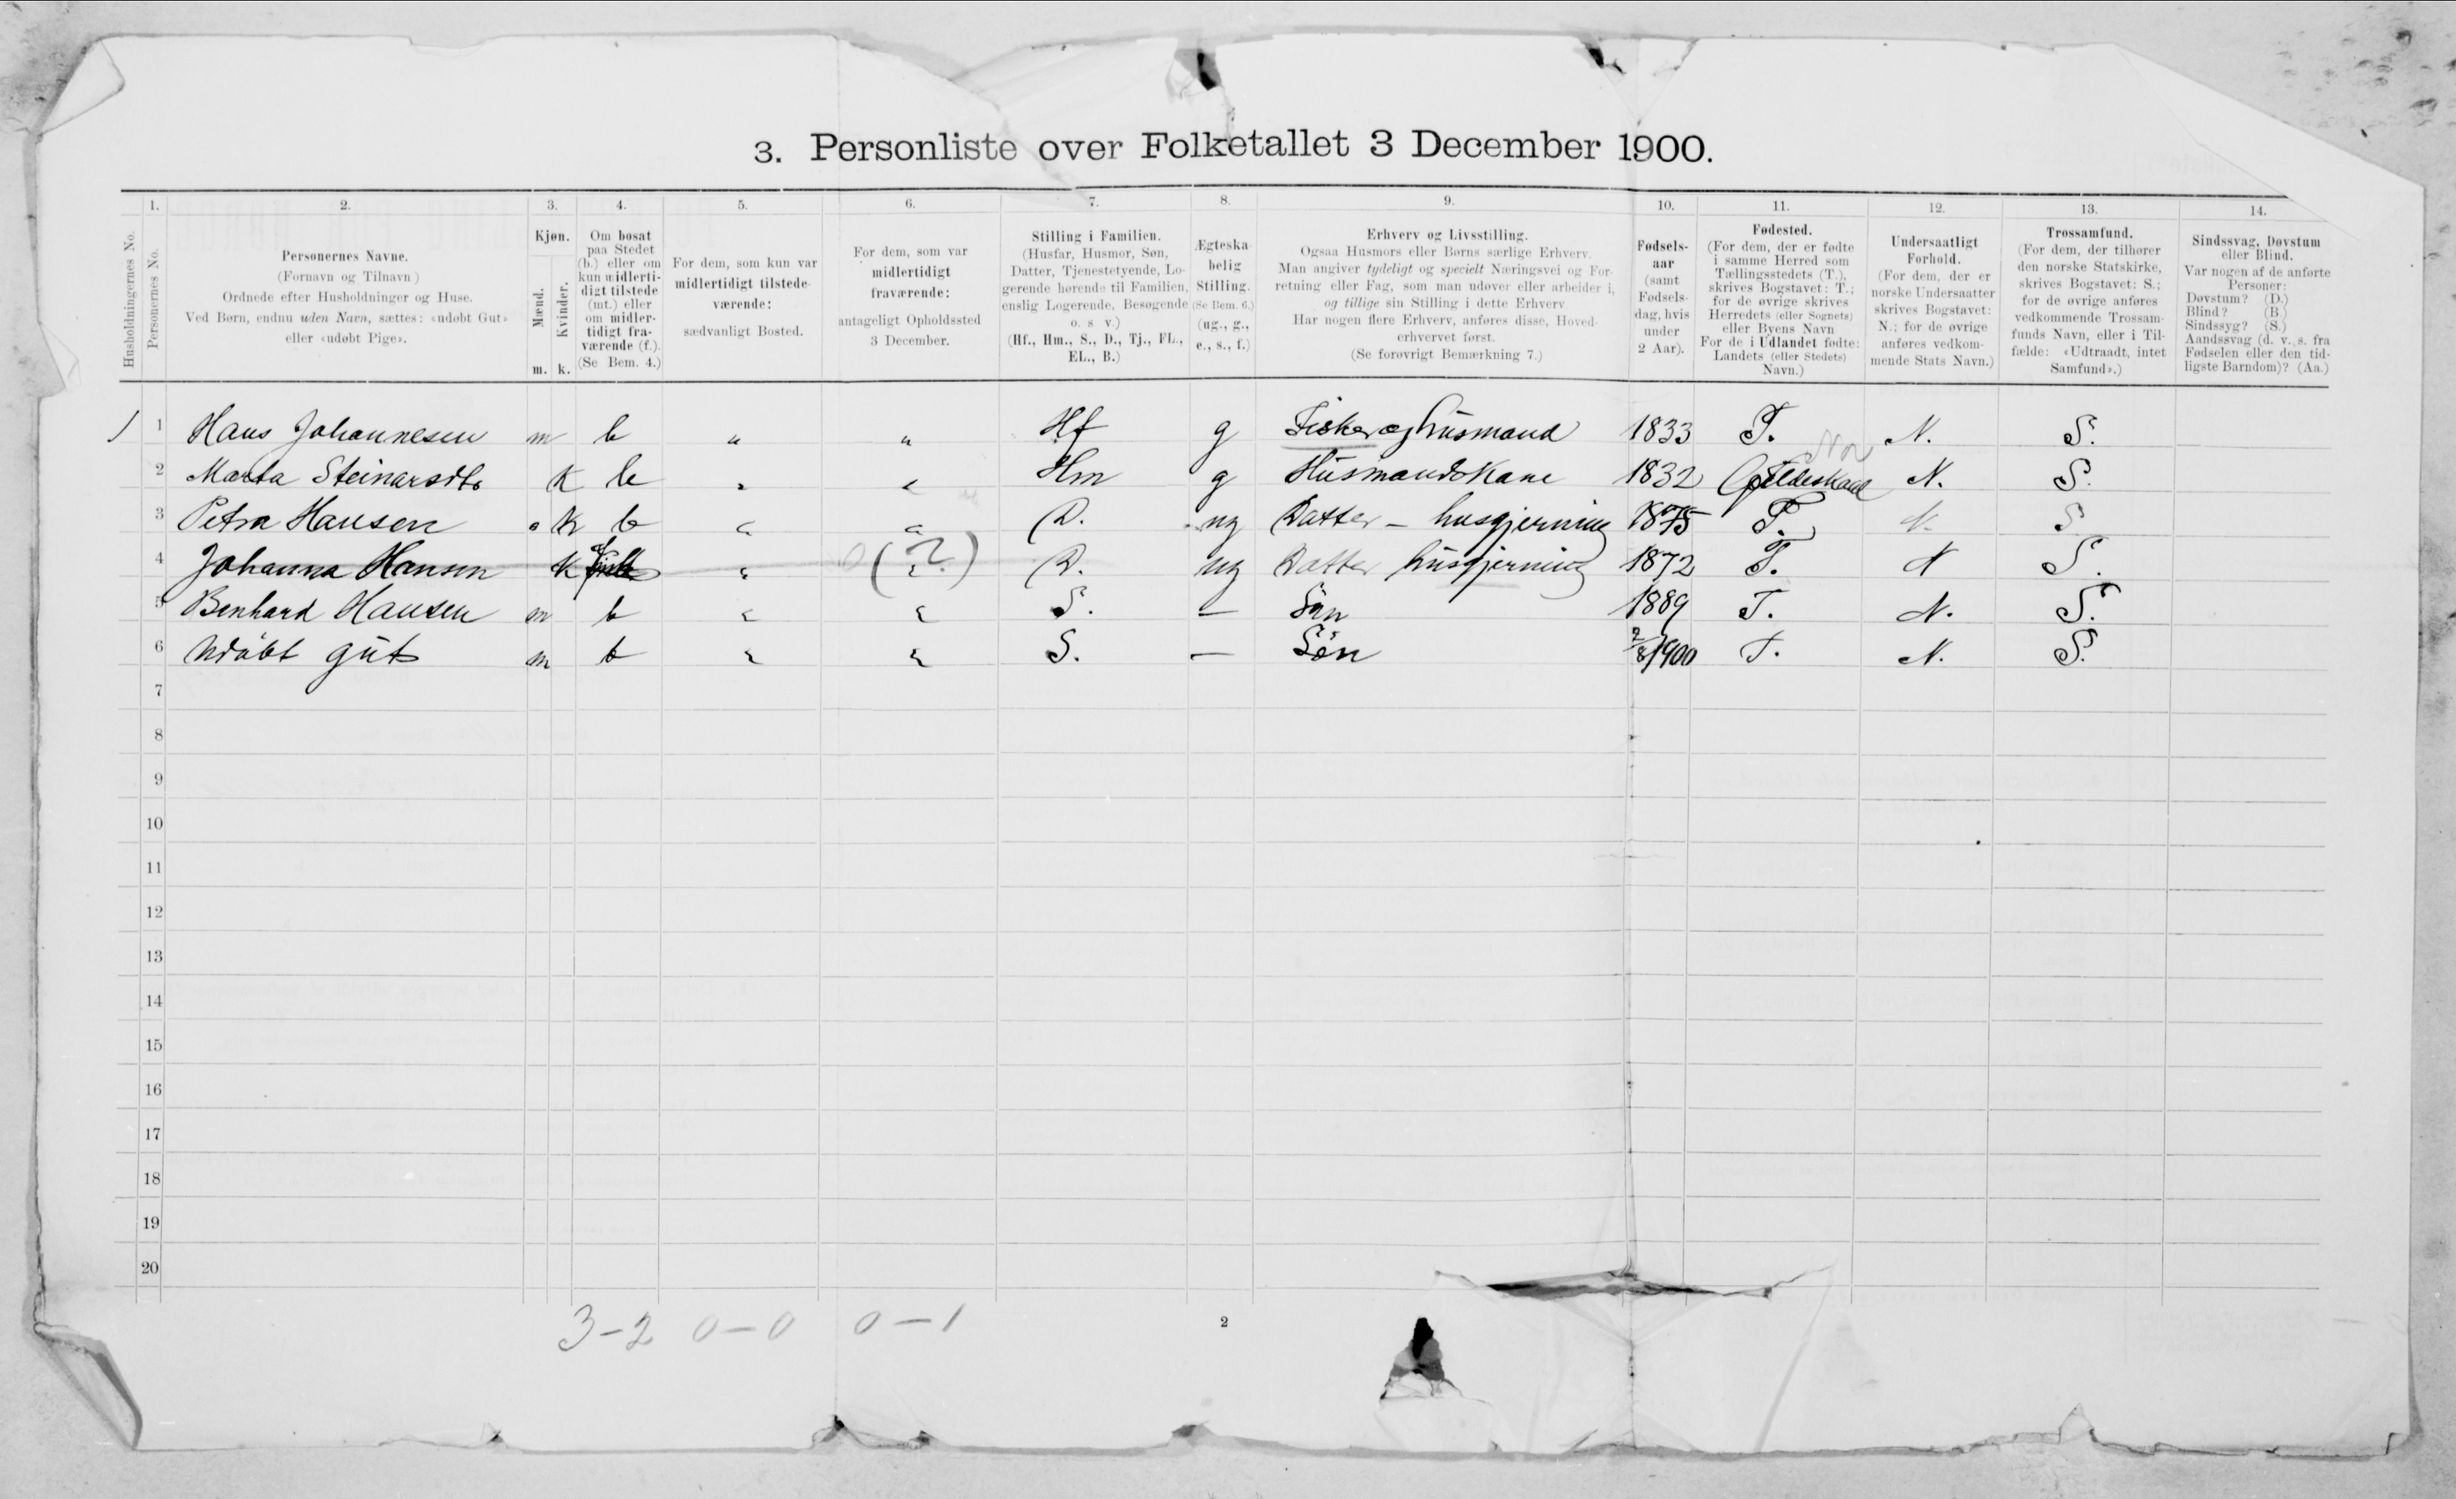 3. Personliste over Folketallet 3 December 1900.
1. 2. 3. 4. 5. 6. 7. 8. 9. 10. 11. 12. 13. 14.
Husholdningernes No.
Personernes No.
Personernes Navne.
(Fornavn og Tilnavn)
Ordnede efter Husholdninger og Huse.
Ved Børn, endnu uden Navn, sættes: «udøbt Gut»
eller «udøbt Pige».
Kjøn.
Mænd.
Kvinder.
m. k.
Om bosat
paa Stedet
(b.) eller om
kun midlerti-
digt tilstede
(mt.) eller
om midler-
tidigt fra-
værende (f.).
(Se Bem. 4.)
For dem, som kun var
midlertidigt tilstede-
værende:
sædvanligt Bosted.
For dem, som var
midlertidigt
fraværende:
antageligt Opholdssted
3 December.
Stilling i Familien.
(Husfar, Husmor, Søn,
Datter, Tjenestetyende, Lo-
gerende hørende til Familien,
enslig Logerende, Besøgende
o. s v.)
(Hf., Hm., S., D., Tj., FL.,
EL., B.)
Ægteska-
belig
Stilling.
(Se Bem. 6.)
(ug., g.,
e., s., f.)
Erhverv og Livsstilling.
Ogsaa Husmors eller Børns særlige Erhverv.
Man angiver tydeligt og specielt Næringsvei og For-
retning eller Fag, som man udøver eller arbeider i,
og tillige sin Stilling i dette Erhverv.
Har nogen flere Erhverv, anføres disse, Hoved-
erhvervet først.
(Se forøvrigt Bemærkning 7.)
Fødsels-
aar
(samt
Fødsels-
dag, hvis
under
2 Aar).
Fødested.
(For dem, der er fødte
i samme Herred som
Tællingsstedets (T.),
skrives Bogstavet: T.;
for de øvrige skrives
Herredets (eller Sognets)
eller Byens Navn
For de i Udlandet fødte:
Landets (eller Stedets)
Navn.)
Undersaatligt
Forhold.
(For dem, der er
norske Undersaatter
skrives Bogstavet:
N.; for de øvrige
anføres vedkom-
mende Stats Navn.)
Trossamfund.
(For dem, der tilhører
den norske Statskirke,
skrives Bogstavet: S.;
for de øvrige anføres
vedkommende Trossam-
funds Navn, eller i Til-
fælde: «Udtraadt, intet
Samfund».)
Sindssvag, Døvstum
eller Blind.
Var nogen af de anførte
Personer:
Døvstum? (D.)
Blind? (B.)
Sindssyg? (S.)
Aandssvag (d. v. s. fra
Fødselen eller den tid-
ligste Barndom)? (Aa.)
1 1 Hans Johannesen m b " " Hf g Fisker og husmand 1833 T. N. S.
2 Marta Steinarsdtr K b " " Hm g Husmandskone 1832 Gjildeskaal N. S.
3 Petra Hansen K b " " D. ug Datter - husgjerning 1875 T. N. S
4 Johanna Hansen K f " (?) D. ug Datter husgjerning 1872 T. N S.
5 Benhard Hansen m b " " S. — Søn 1889 T. N. S.
6 Udøbt gut m b " " S. — Søn 2/8 1900 T. N. S.
7
8
9
10
11
12
13
14
15
16
17
18
19
20
3-2 0-0 0-1
2